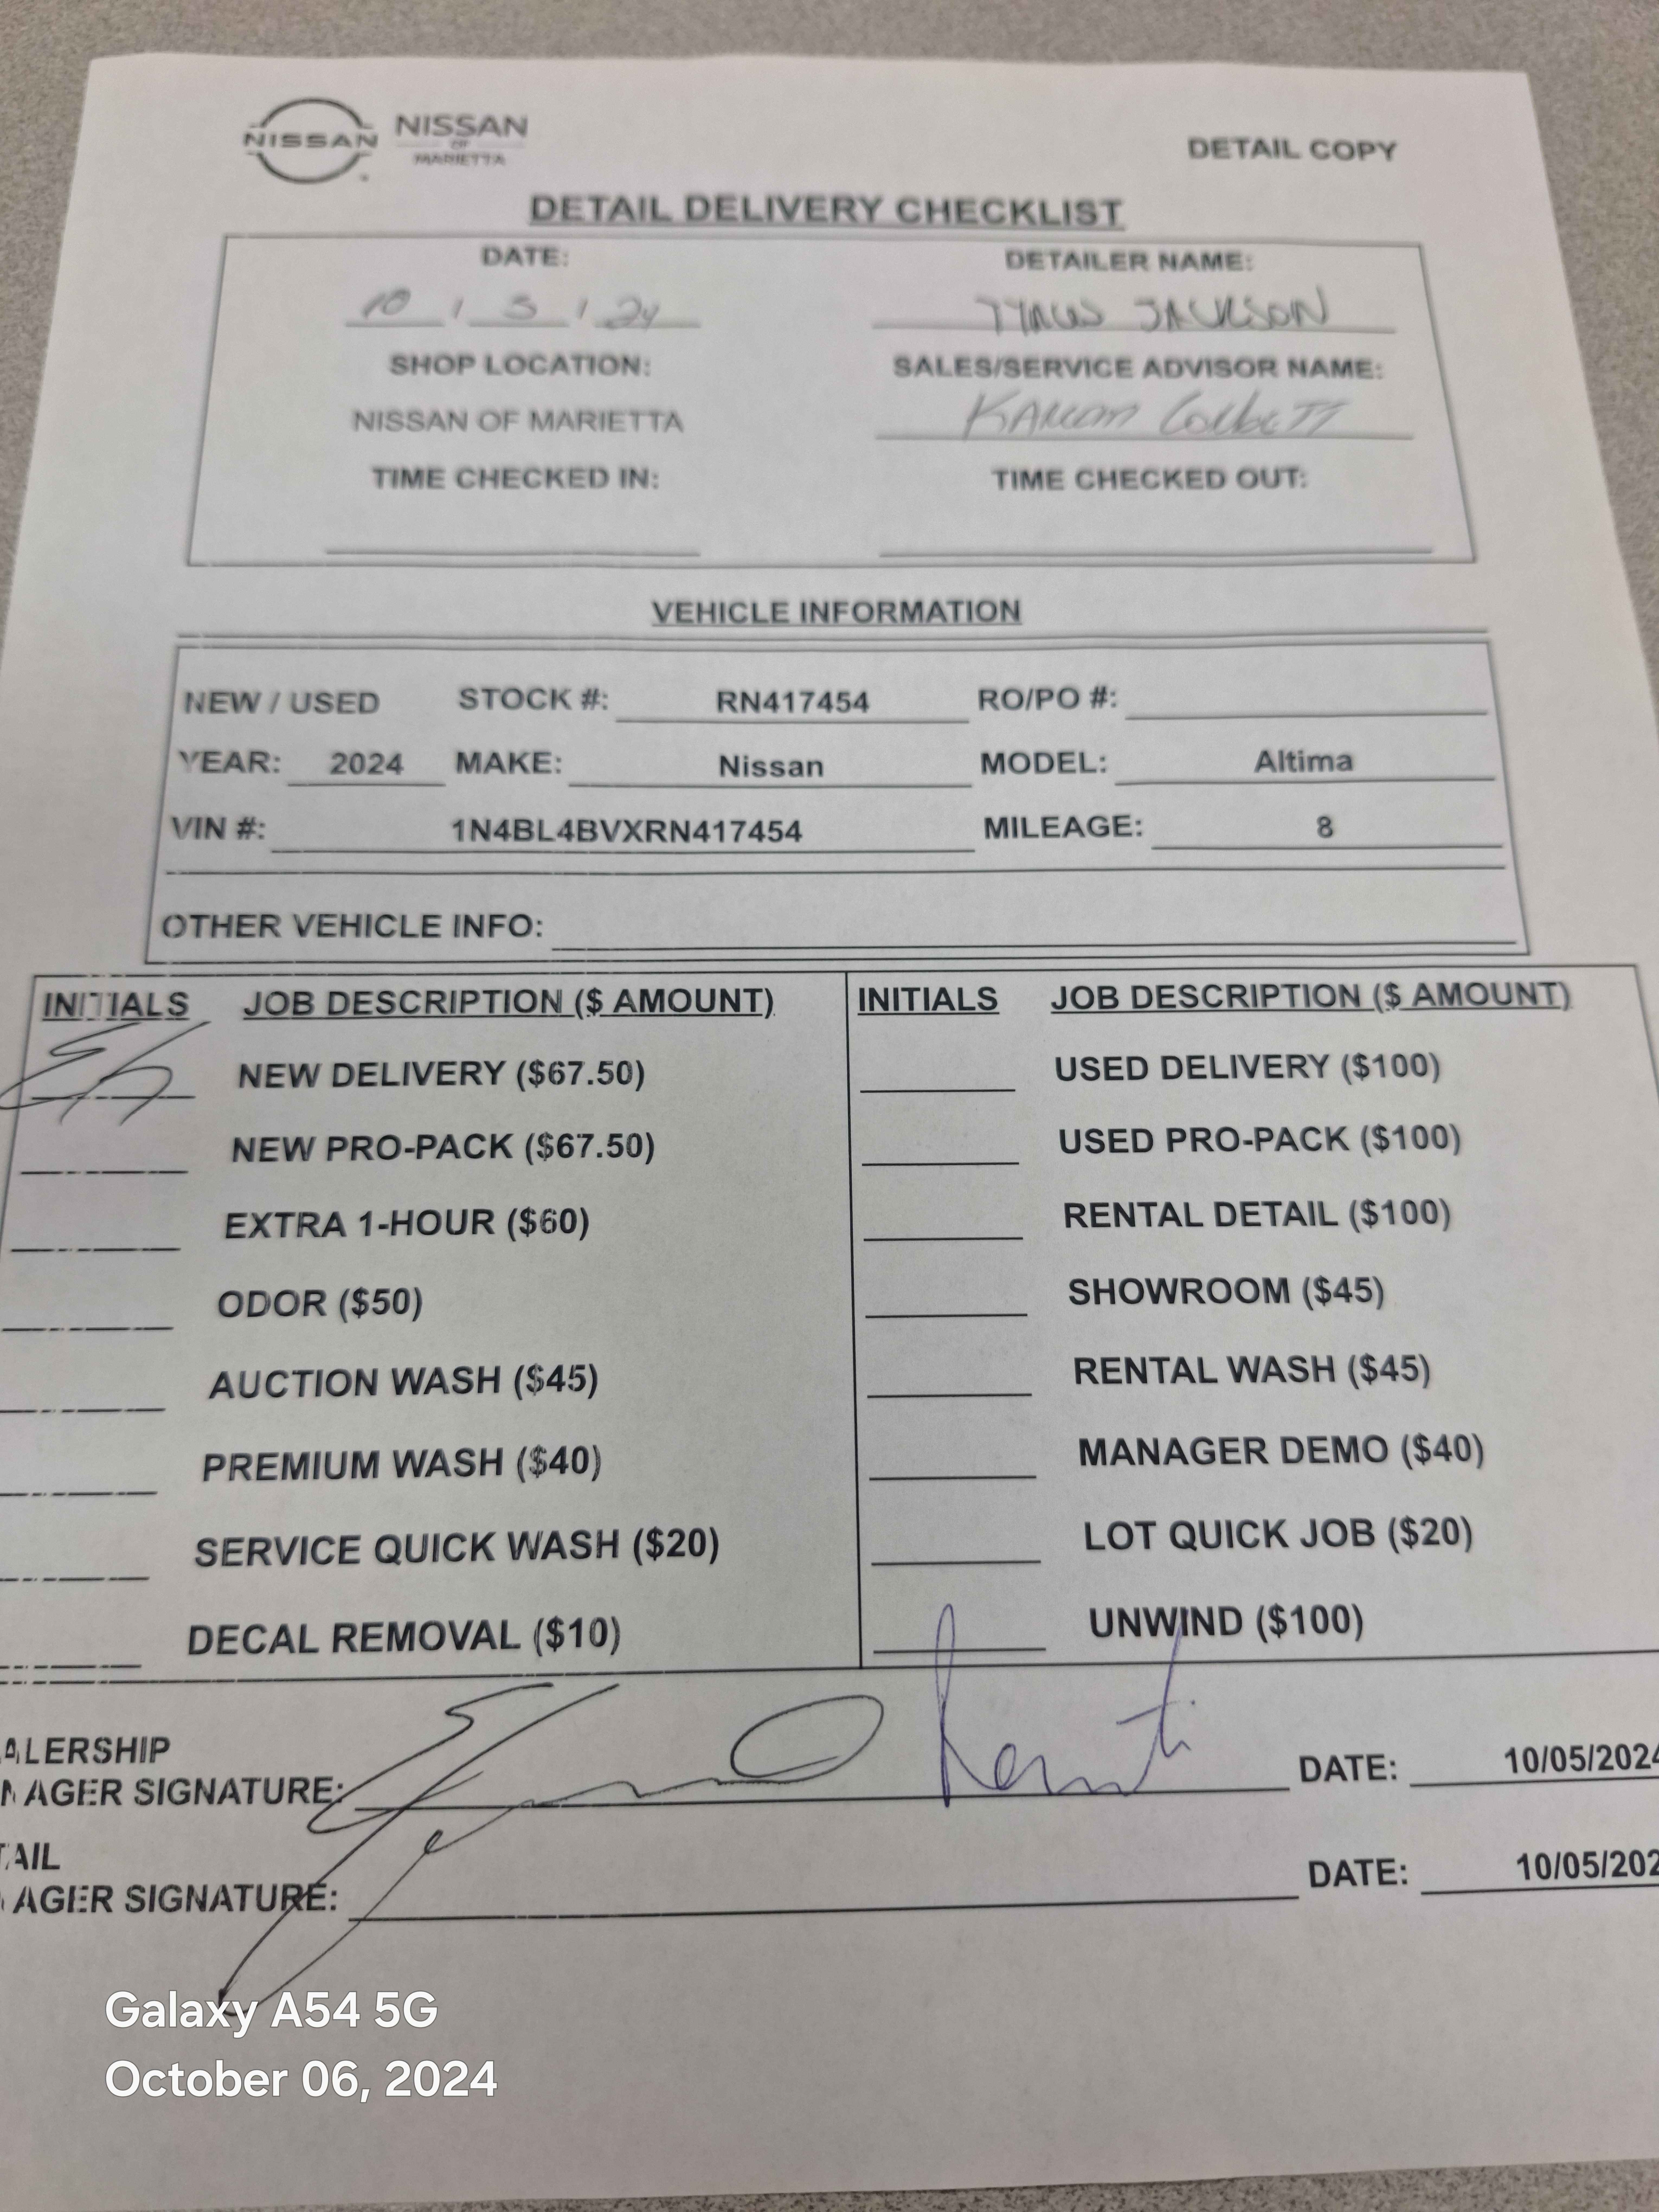 NISSAN NISSAN
OF
MARIETTA
DETAIL COPY
DETAIL DELIVERY CHECKLIST
DATE: DETAILER NAME:
10 / 5 / 24 TYRUS JACKSON
SHOP LOCATION: SALES/SERVICE ADVISOR NAME:
NISSAN OF MARIETTA
TIME CHECKED IN: TIME CHECKED OUT:
VEHICLE INFORMATION
NEW / USED STOCK #: RN417454 RO/PO #:
YEAR: 2024 MAKE: Nissan MODEL: Altima
VIN #: 1N4BL4BVXRN417454 MILEAGE: 8
OTHER VEHICLE INFO:
INITIALS JOB DESCRIPTION ($ AMOUNT) INITIALS JOB DESCRIPTION ($ AMOUNT)
NEW DELIVERY ($67.50) USED DELIVERY ($100)
NEW PRO-PACK ($67.50) USED PRO-PACK ($100)
EXTRA 1-HOUR ($60) RENTAL DETAIL ($100)
ODOR ($50) SHOWROOM ($45)
AUCTION WASH ($45) RENTAL WASH ($45)
PREMIUM WASH ($40) MANAGER DEMO ($40)
SERVICE QUICK WASH ($20) LOT QUICK JOB ($20)
DECAL REMOVAL ($10) UNWIND ($100)
ALERSHIP
AGER SIGNATURE: DATE: 10/05/2024
AIL
AGER SIGNATURE: DATE: 10/05/202
Galaxy A54 5G
October 06, 2024